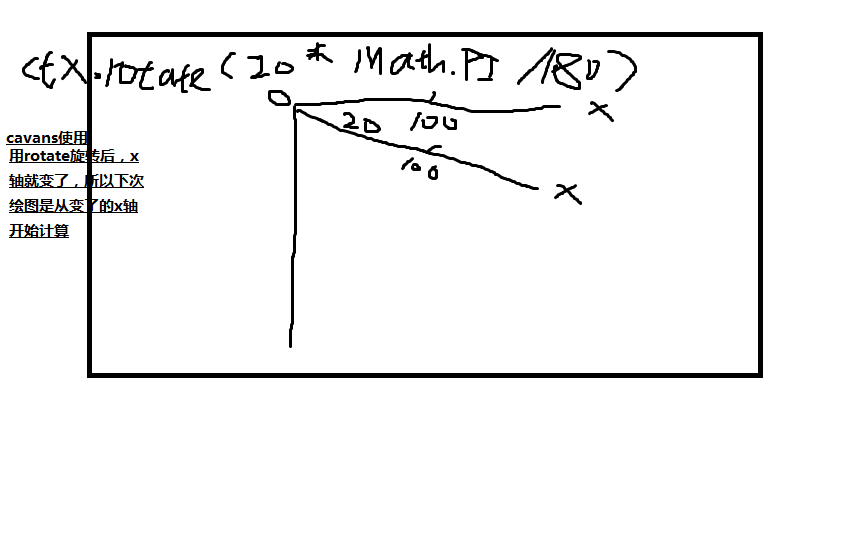 ctx.rotate(20* Math.PI /180)
0
x
20 100
100
x
cavans使用
用rotate旋转后，x
轴就变了，所以下次
绘图是从变了的x轴
开始计算